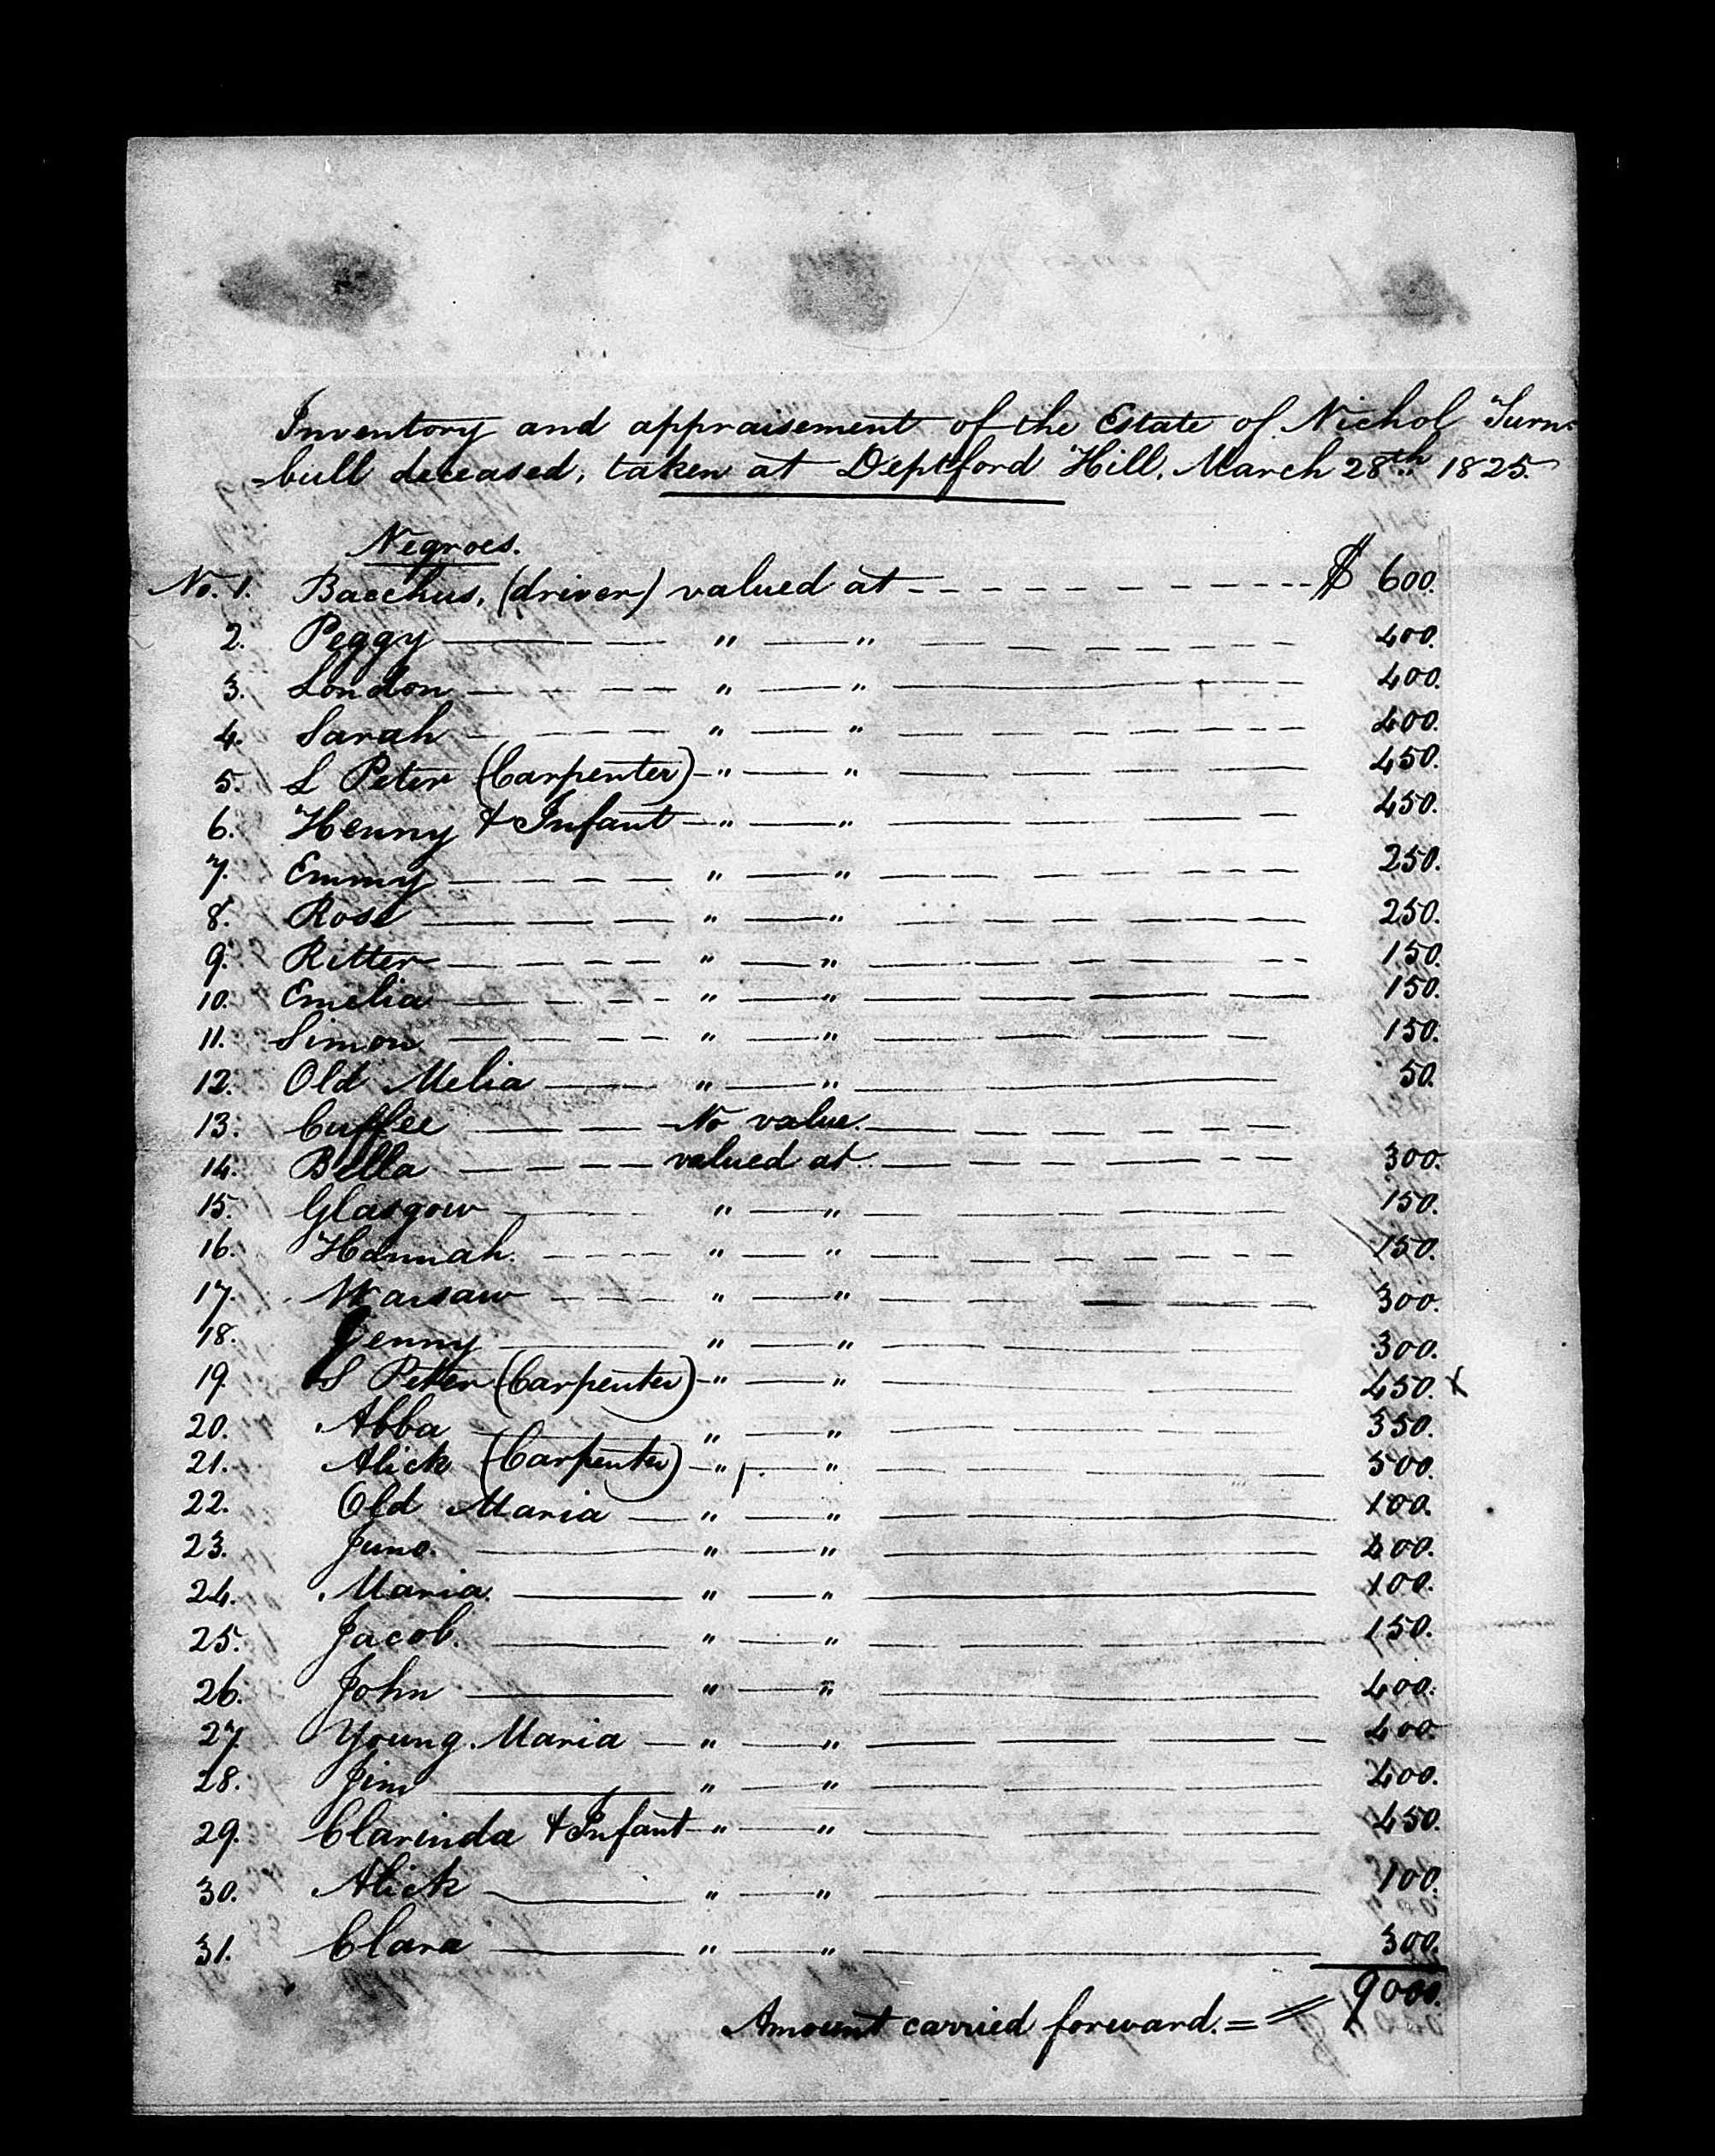 Inventory and appraisement of the Estate of Nichol Turn=
=bull deceased, taken at Deptford Hill, March 28th 1825.
Negroes.
No. 1. Bacchus, (driver) valued at - - - - - - - - $ 600.
2. Peggy " " 400.
3. London " " 400.
4. Sarah " " 400.
5. S Peter (Carpenter) " " 450.
6. Henny & Infant " " 450.
7. Emmy " " 250.
8. Rose " " 250.
9. Ritter " " 150.
10. Emelia " " 150.
11. Simon " " 150.
12. Old Melia " " 50.
13. Cuffee No value.
14. Bella valued at 300.
15. Glasgow " " 150.
16. Hannah. " " 150.
17. Warsaw " " 300.
18. Jenny " " 300.
19. S Peter (Carpenter) " " 450. x
20. Abba " " 350.
21. Alick (Carpenter) " " 500.
22. Old Maria " " 100.
23. Juno. " " 400.
24. Maria. " " 100.
25. Jacob. " " 150.
26. John " " 400.
27. Young Maria " " 400.
28. Jim " " 400.
29. Clarinda & Infant " " 450.
30. Alick " " 100.
31. Clara " " 300.
9000.
Amount carried forward. =